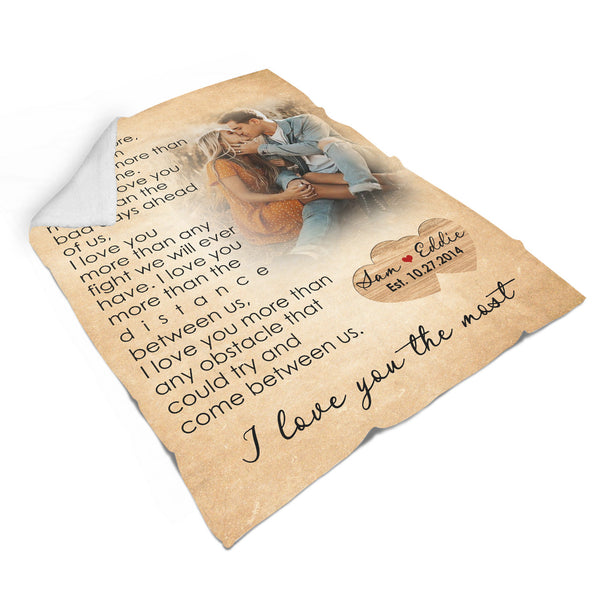 more than
love you
than the
bad days ahead
of us,
I love you
more than any
fight we will ever
have. I love you
more than the
distance
between us,
I love you more than
any obstacle that
could try and
come between us.
Sam Eddie
Est. 10.27.2014
I love you the most